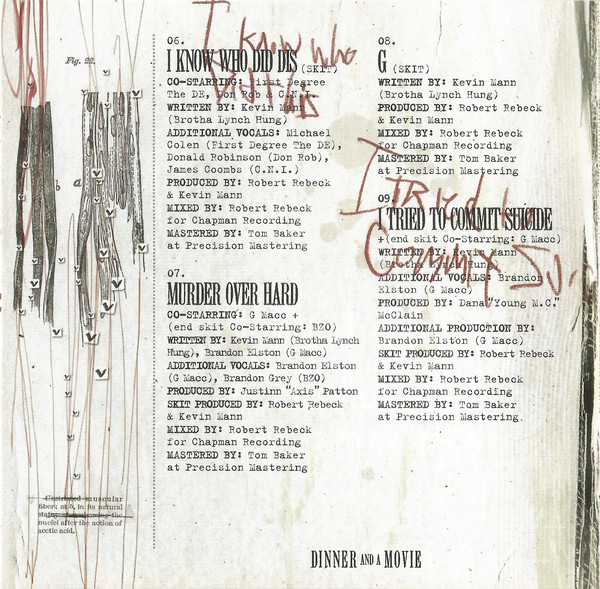 Fig. 22.
a
06.
I KNOW WHO DID DIS (SKIT)
CO-STARRING: First Degree
The DE, Don Rob & C.N.I.
WRITTEN BY: Kevin Mann
(Brotha Lynch Hung)
ADDITIONAL VOCALS: Michael
Colen (First Degree The DE),
Donald Robinson (Don Rob),
James Coombs (C.N.I.)
PRODUCED BY: Robert Rebeck
& Kevin Mann
MIXED BY: Robert Rebeck
for Chapman Recording
MASTERED BY: Tom Baker
at Precision Mastering
07.
MURDER OVER HARD
CO-STARRING: G Macc +
(end skit Co-Starring: BZO)
WRITTEN BY: Kevin Mann (Brotha Lynch
Hung), Brandon Elston (G Macc)
ADDITIONAL VOCALS: Brandon Elston
(G Macc), Brandon Grey (BZO)
PRODUCED BY: Justinn "Axis" Patton
SKIT PRODUCED BY: Robert Rebeck
& Kevin Mann
MIXED BY: Robert Rebeck
for Chapman Recording
MASTERED BY: Tom Baker
at Precision Mastering
08.
G (SKIT)
WRITTEN BY: Kevin Mann
(Brotha Lynch Hung)
PRODUCED BY: Robert Rebeck
& Kevin Mann
MIXED BY: Robert Rebeck
for Chapman Recording
MASTERED BY: Tom Baker
at Precision Mastering
09.
I TRIED TO COMMIT SUICIDE
+(end skit Co-Starring: G Macc)
WRITTEN BY: Kevin Mann
(Brotha Lynch Hung)
ADDITIONAL VOCALS: Brandon
Elston (G Macc)
PRODUCED BY: Dana "Young M.C."
McClain
ADDITIONAL PRODUCTION BY:
Brandon Elston (G Macc)
SKIT PRODUCED BY: Robert Rebeck
& Kevin Mann
MIXED BY: Robert Rebeck
for Chapman Recording
MASTERED BY: Tom Baker
at Precision Mastering.
I know who
I TRied to
Commit Su
muscular
fibers at b, in its natural
state; the
nuclei after the action of
acetic acid.
DINNER AND A MOVIE